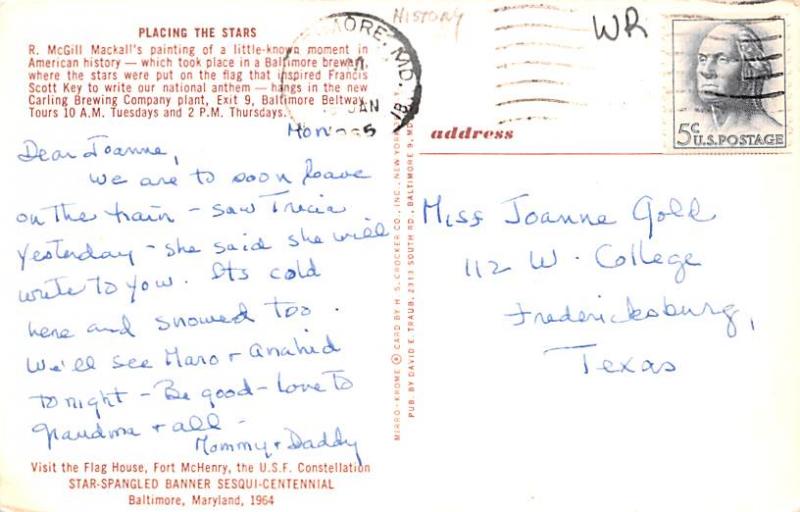 PLACING THE STARS
R. McGill Mackall's painting of a little-known moment in
American history — which took place in a Baltimore brewery,
where the stars were put on the flag that inspired Francis
Scott Key to write our national anthem — hangs in the new
Carling Brewing Company plant, Exit 9, Baltimore Beltway.
Tours 10 A.M. Tuesdays and 2 P.M. Thursdays.
Mon
Dear Joanne,
We are to soon leave
on the train - saw Tricia
yesterday - she said she will
write to you. Its cold
here and snowed too.
We'll see Maro + Anahid
tonight - Be good - Love to
Grandma + all -
Mommy + Daddy
Visit the Flag House, Fort McHenry, the U.S.F. Constellation
STAR-SPANGLED BANNER SESQUI-CENTENNIAL
Baltimore, Maryland, 1964
MIRRO-KROME ® CARD BY H. S. CROCKER CO., INC., NEW YORK
PUB. BY DAVID E. TRAUB, 2313 SOUTH RD., BALTIMORE 9, MD.
HISTORY
MORE, MD.
JAN
WR
5c
U.S. POSTAGE
address
Miss Joanne Gold
112 W. College
Fredericksburg,
Texas